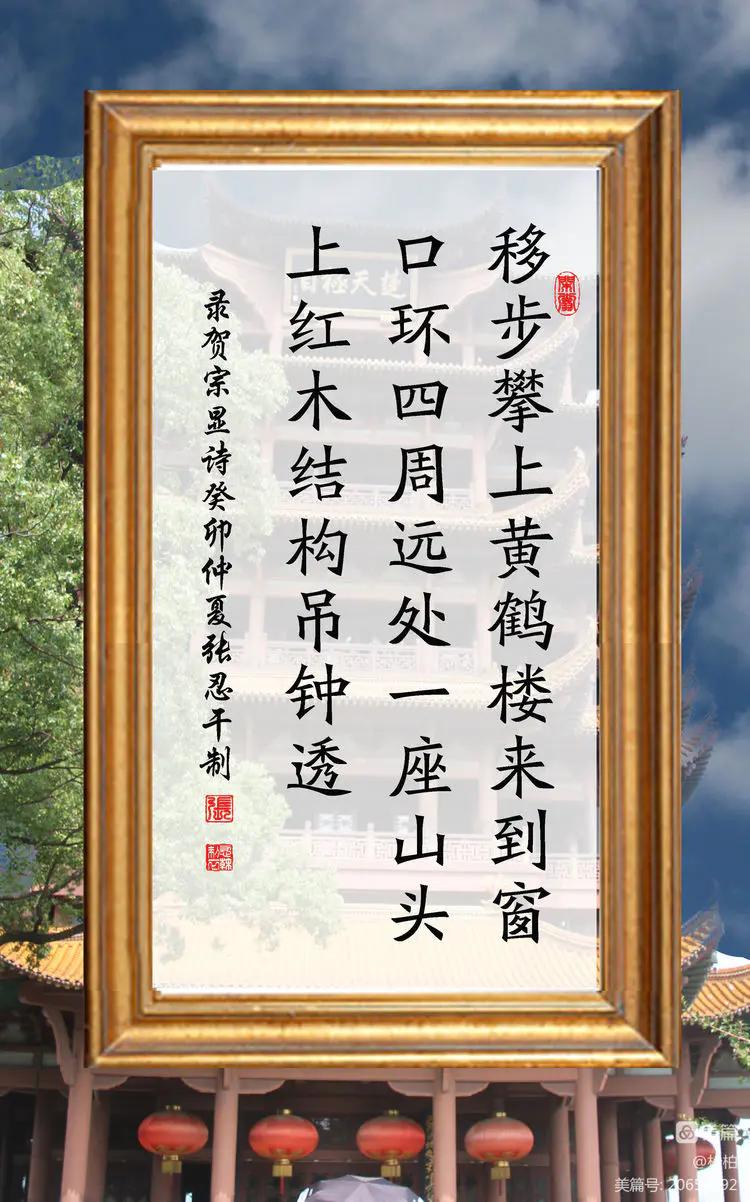 移步攀上黄鹤楼来到窗
口环四周远处一座山头
上红木结构吊钟透
录贺宗显诗癸卯仲夏张忍干制
張
楚天極目
美篇
美篇号: